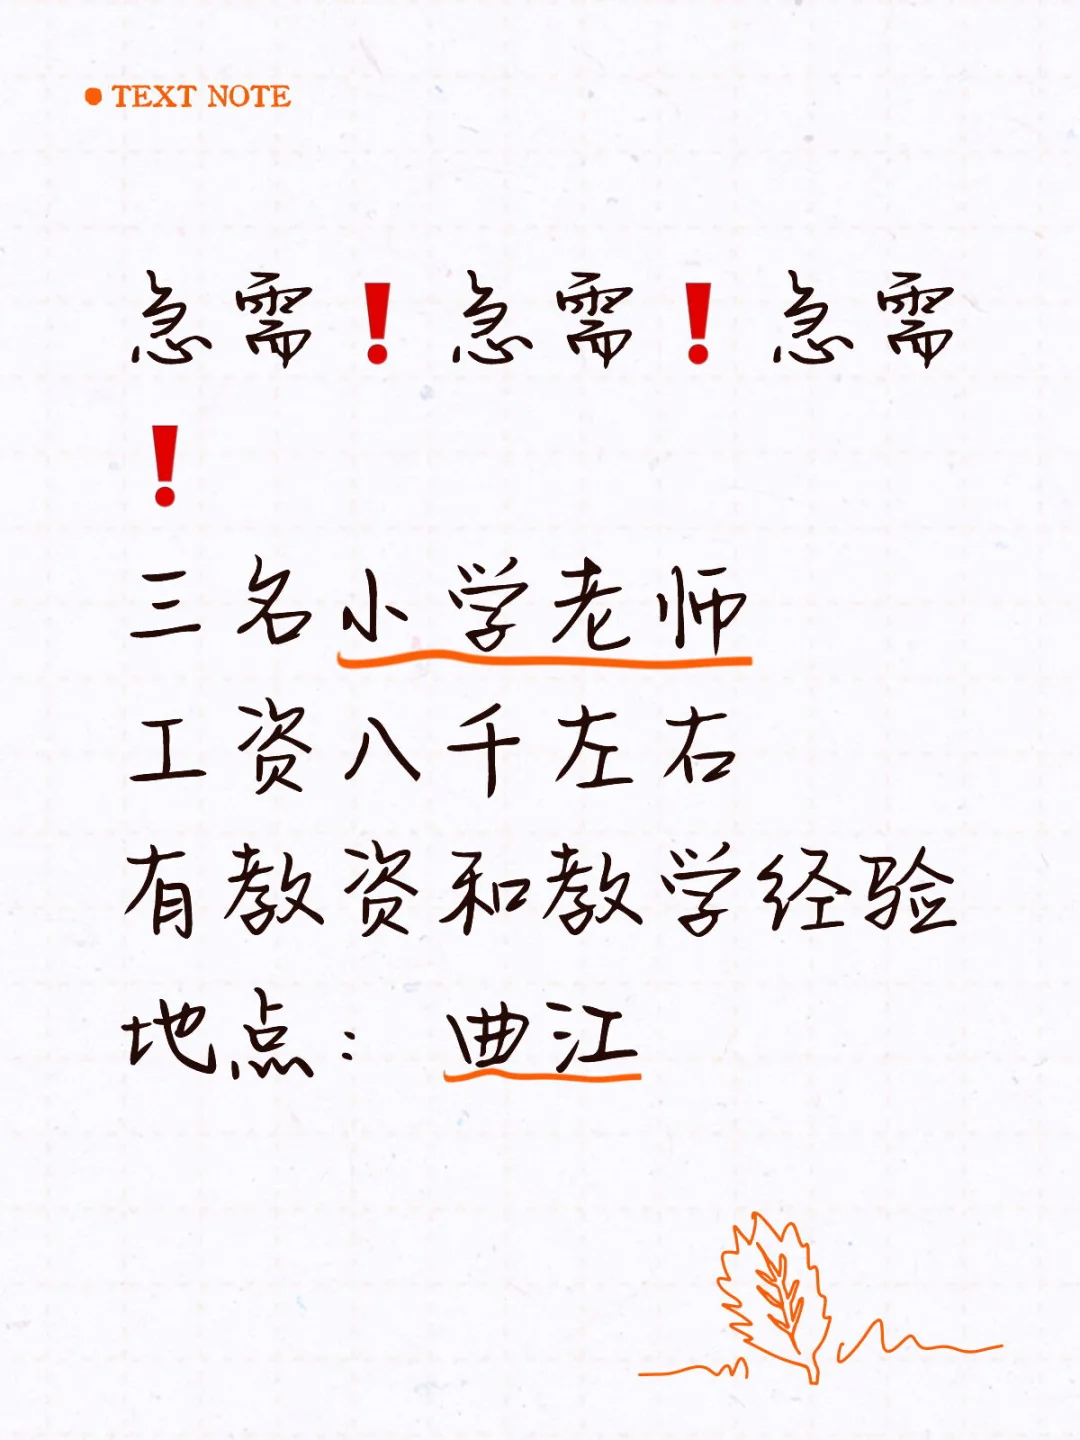 TEXT NOTE
急需❗急需❗急需
❗
三名小学老师
工资八千左右
有教资和教学经验
地点：曲江